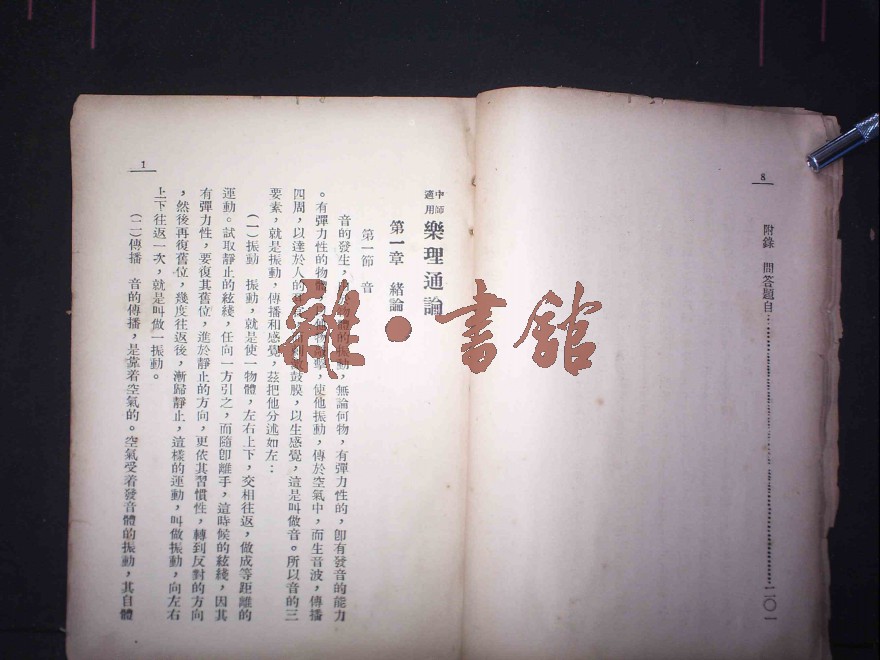 8
附錄 問答題目⋯⋯⋯⋯⋯⋯⋯⋯⋯⋯二〇一
1
中師適用 樂理通論
第一章 緒論
第一節 音
音的發生,物體的振動,無論何物,有彈力性的,卽有發音的能力
。有彈力性的物體,使他振動,傳於空氣中,而生音波,傳播
四周,以達於人的鼓膜,以生感覺,這是叫做音。所以音的三
要素,就是振動,傳播和感覺,茲把他分述如左:
(一)振動 振動,就是使一物體,左右上下,交相往返,做成等距離的
運動。試取靜止的絃綫,任向一方引之,而隨卽離手,這時候的絃綫,因其
有彈力性,要復其舊位,進於靜止的方向,更依其習慣性,轉到反對的方向
,然後再復舊位,幾度往返後,漸歸靜止,這樣的運動,叫做振動,向左右
上下往返一次,就是叫做一振動。
(二)傳播 音的傳播,是靠着空氣的。空氣受着發音體的振動,其自體
雜•書館